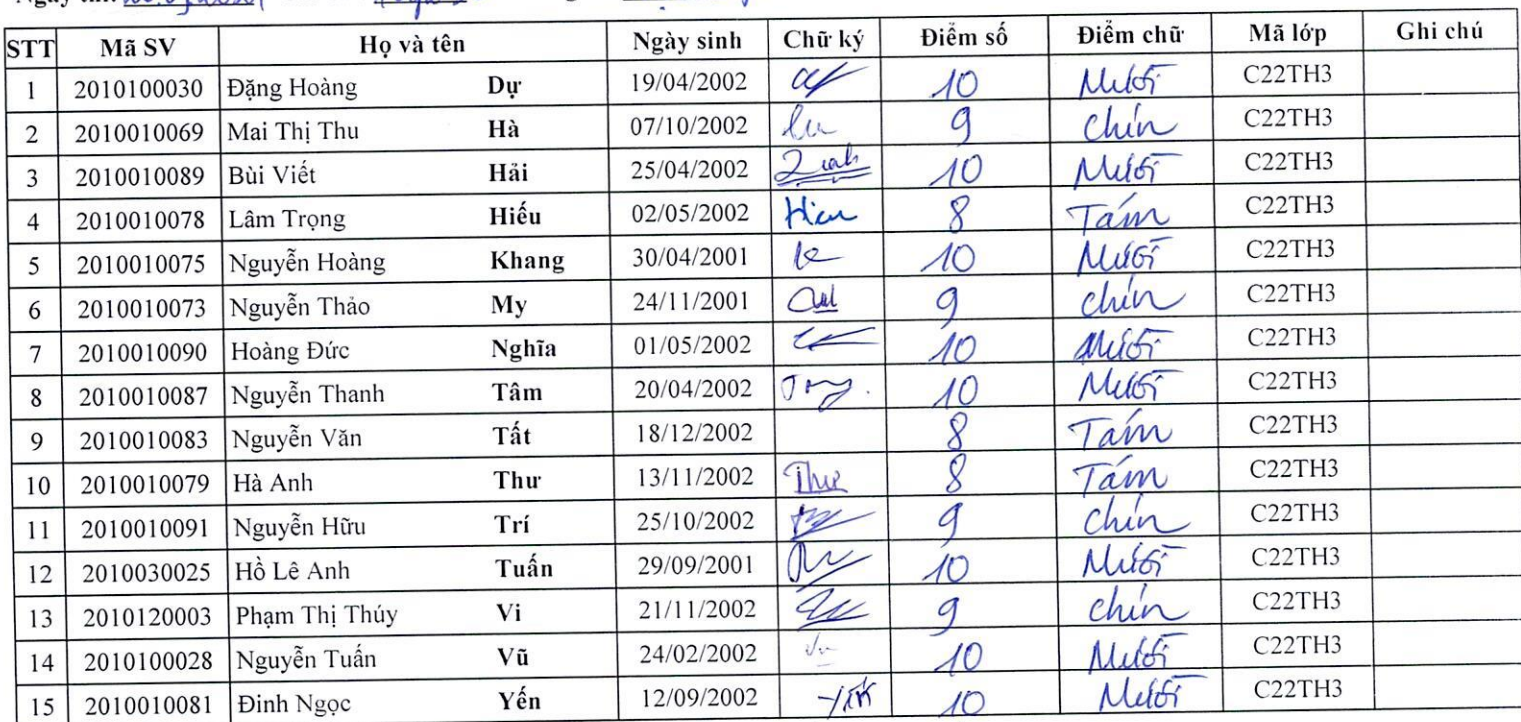 STT Mã SV Họ và tên Ngày sinh Chữ ký Điểm số Điểm chữ Mã lớp Ghi chú
1 2010100030 Đặng Hoàng Dự 19/04/2002 10 Mười C22TH3
2 2010010069 Mai Thị Thu Hà 07/10/2002 9 Chín C22TH3
3 2010010089 Bùi Viết Hải 25/04/2002 10 Mười C22TH3
4 2010010078 Lâm Trọng Hiếu 02/05/2002 8 Tám C22TH3
5 2010010075 Nguyễn Hoàng Khang 30/04/2001 10 Mười C22TH3
6 2010010073 Nguyễn Thảo My 24/11/2001 9 Chín C22TH3
7 2010010090 Hoàng Đức Nghĩa 01/05/2002 10 Mười C22TH3
8 2010010087 Nguyễn Thanh Tâm 20/04/2002 10 Mười C22TH3
9 2010010083 Nguyễn Văn Tất 18/12/2002 8 Tám C22TH3
10 2010010079 Hà Anh Thư 13/11/2002 Thư 8 Tám C22TH3
11 2010010091 Nguyễn Hữu Trí 25/10/2002 9 Chín C22TH3
12 2010030025 Hồ Lê Anh Tuấn 29/09/2001 10 Mười C22TH3
13 2010120003 Phạm Thị Thúy Vi 21/11/2002 9 Chín C22TH3
14 2010100028 Nguyễn Tuấn Vũ 24/02/2002 10 Mười C22TH3
15 2010010081 Đinh Ngọc Yến 12/09/2002 10 Mười C22TH3